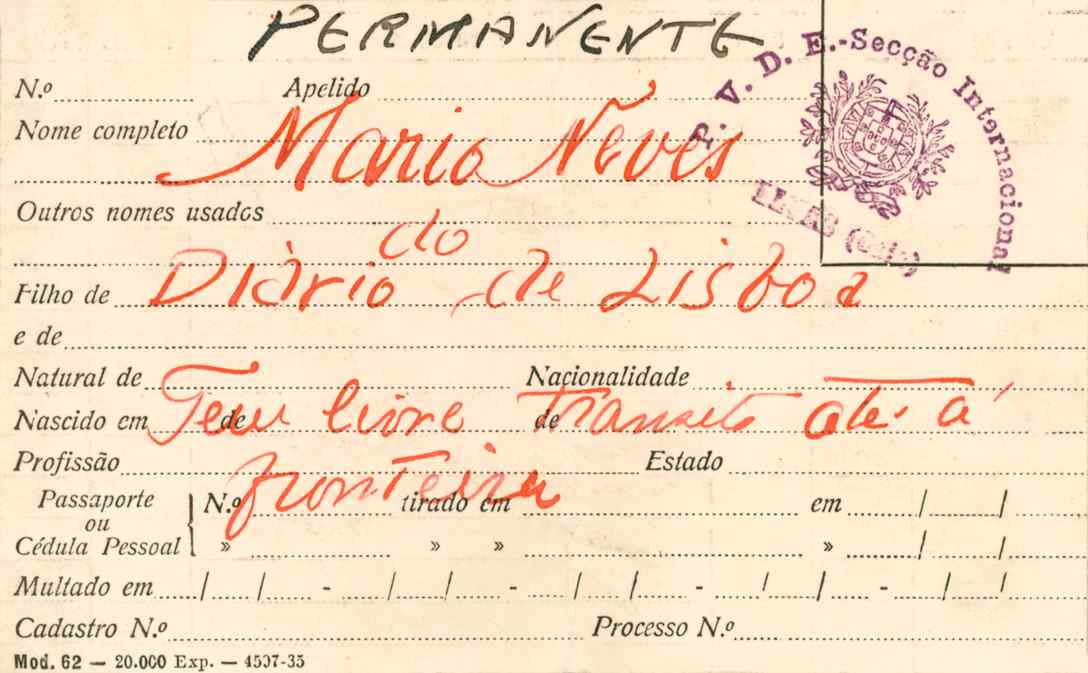 PERMANENTE
P. V. D. E.-Secção Internacional
N.º Apelido
Nome completo
Mario Neves
Outros nomes usados
do
Diário de Lisboa
Filho de
e de
Natural de Nacionalidade
Nascido em de de
Tem livre transito até à
Profissão Estado
fronteira
Passaporte ou Cédula Pessoal
N.º tirado em em / /
» » » » / /
Multado em / / - / / - / / - / / - / /
Cadastro N.º Processo N.º
Mod. 62 — 20.000 Exp. — 4507-35